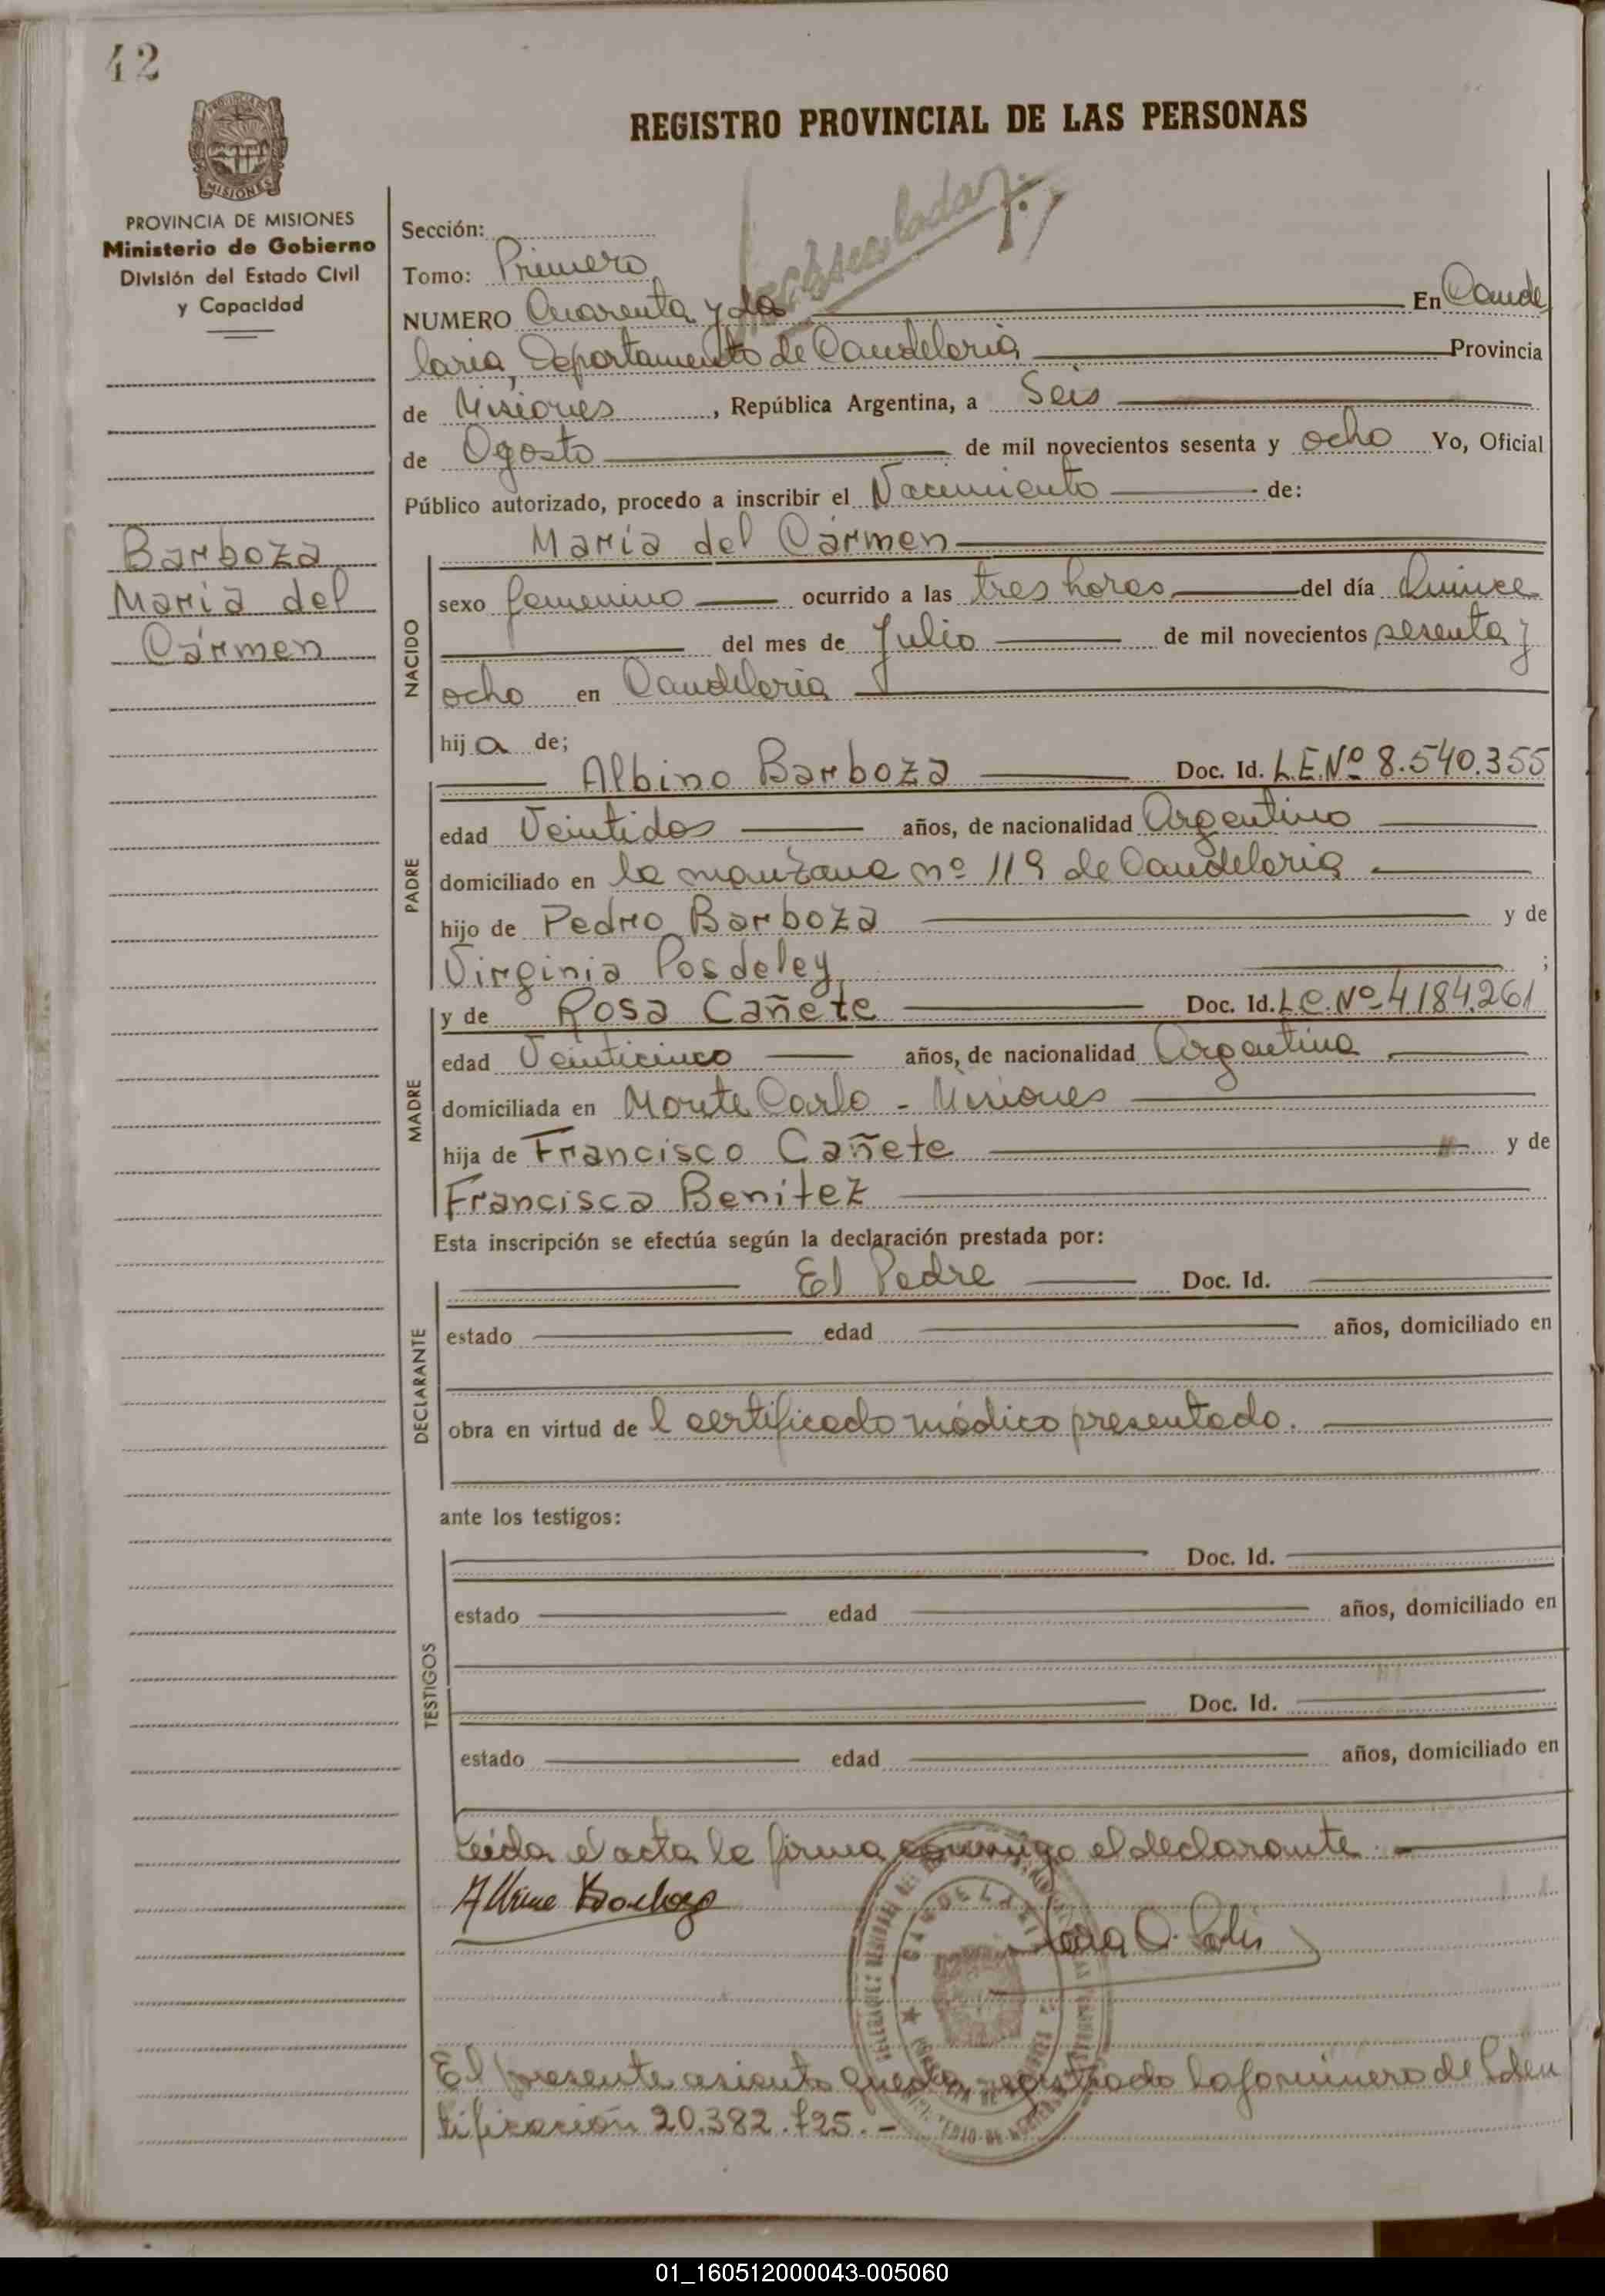 42
MISIONES
PROVINCIA DE MISIONES
Ministerio de Gobierno
División del Estado Civil
y Capacidad
Barboza
María del
Cármen
REGISTRO PROVINCIAL DE LAS PERSONAS
Sección:
Tomo: Primero
NUMERO Cuarenta y dos En Cande
laria, Departamento de Candelaria Provincia
de Misiones, República Argentina, a Seis
de Agosto de mil novecientos sesenta y ocho Yo, Oficial
Público autorizado, procedo a inscribir el Nacimiento de:
NACIDO
María del Cármen
sexo femenino ocurrido a las tres horas del día Quince
del mes de Julio de mil novecientos sesenta y
ocho en Candelaria
hij a de;
PADRE
Albino Barboza Doc. Id. L.E.Nº 8.540.355
edad Veintidos años, de nacionalidad Argentino
domiciliado en la manzana nº 119 de Candelaria
hijo de Pedro Barboza y de
Virginia Posdeley ;
MADRE
y de Rosa Cañete Doc. Id. L.C.Nº 4184.261
edad Veinticinco años, de nacionalidad Argentina
domiciliada en Monte Carlo - Misiones
hija de Francisco Cañete y de
Francisca Benitez
Esta inscripción se efectúa según la declaración prestada por:
DECLARANTE
El Padre Doc. Id.
estado edad años, domiciliado en
obra en virtud de l certificado médico presentado.
ante los testigos:
TESTIGOS
Doc. Id.
estado edad años, domiciliado en
Doc. Id.
estado edad años, domiciliado en
Leida el acta la firma conmigo el declarante.
CANDELARIA
El presente asiento queda registrado bajo número de Iden
tificación 20.382.725.-
01_160512000043-005060